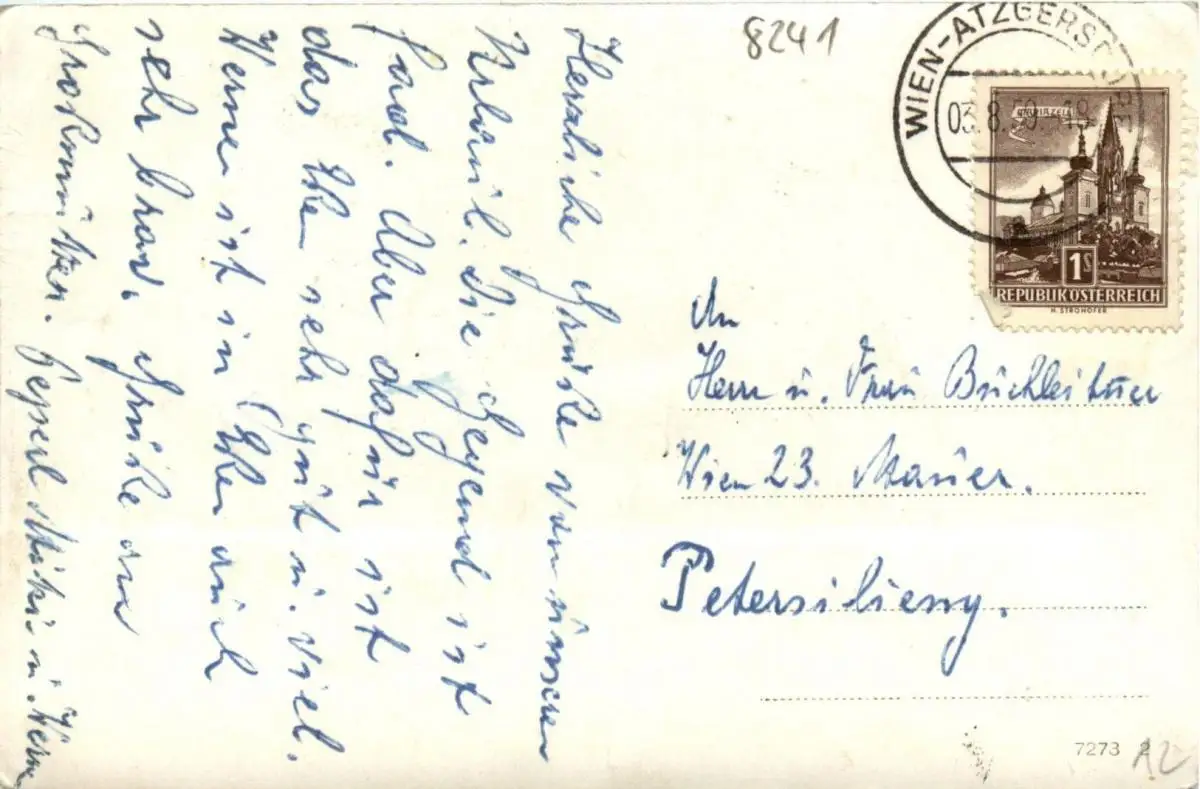 8241
WIEN-ATZGERSD
03.8. 0.-18
MARIAZELL
1S
REPUBLIK ÖSTERREICH
H. STROHOFER
Herzliche Grüße von unseren
Urlaub. Die Gegend ist
fad. Aber dafür ist
das Essen sehr gut u. viel.
Werner ist in Essen auch
sehr brav. Grüße an
Großmutter.
Mitzi u. Wern
An
Herrn u. Frau Buchleitner
Wien 23. Mauer.
Petersilieng.
7273 2
A2